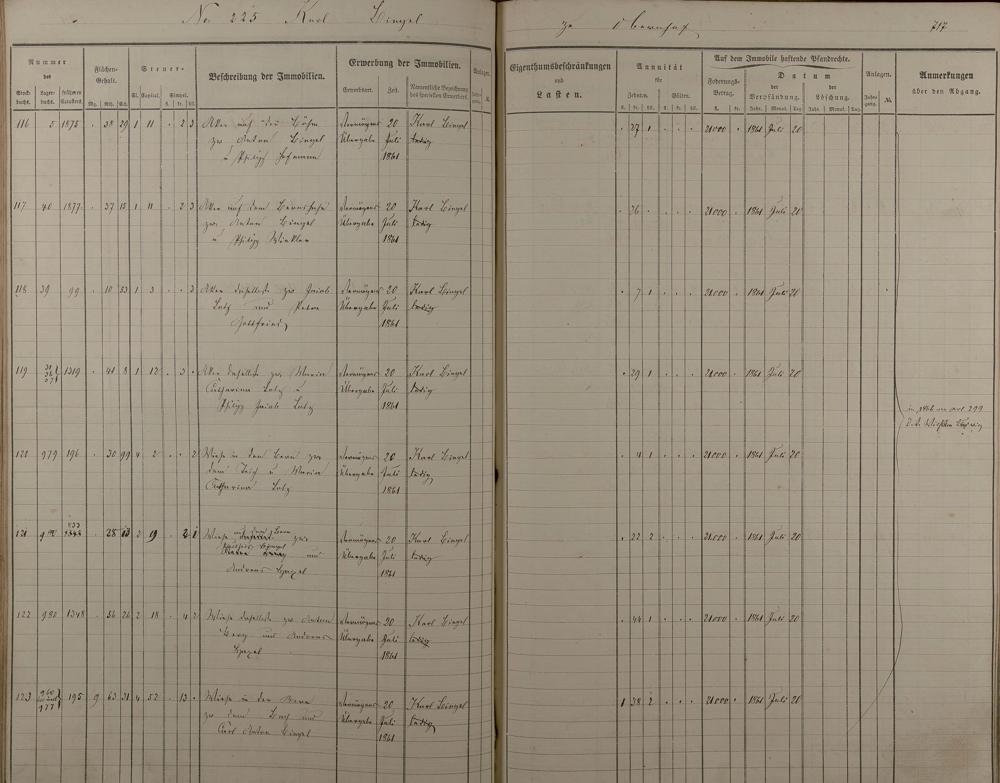 No 225 Karl Bingel
zu Obernhof
717
Nummer
des
Stock-
buchs.
Lager-
buchs.
früheren
Katasters.
Flächen-
Gehalt.
Mg. Rth. Sch.
Steuer-
Cl. Capital.
Simpel.
fl. kr. hl.
Beschreibung der Immobilien.
Erwerbung der Immobilien.
Erwerbsart.
Zeit.
Namentliche Bezeichnung
des speciellen Erwerbers.
Anlagen.
Jahr-
gang.
№
Eigenthumsbeschränkungen
und
Lasten.
Annuität
für
Zehnten.
Gülten.
fl. kr. hl. fl. kr. hl.
Auf dem Immobile haftende Pfandrechte.
Forderungs-
Betrag.
fl. kr.
Datum
der
Verpfändung.
Jahr. Monat. Tag
der
Löschung.
Jahr. Monat. Tag
Anlagen.
Jahr-
gang.
№.
Anmerkungen
über den Abgang.
116 5 1875 . 38 29 1 11 . 2 3 Acker auf der Vermögens 20 Karl Bingel . 27 1 . . . 21000 . 1861 Juli 20
zw. Anton Bingel Übergabe Juli ledig
u Philipp Hofmann 1861
117 40 1877 . 37 15 1 11 . 2 3 Acker auf dem Vermögens 20 Karl Bingel . 26 . . . . 21000 . 1861 Juli 20
zw. Anton Bingel Übergabe Juli ledig
u Philipp Winkler 1861
118 39 99 . 10 53 1 3 . . 3 Acker daselbst zw Jacob Vermögens 20 Karl Bingel . 7 1 . . . 21000 . 1861 Juli 20
Lotz und Peter Übergabe Juli ledig
Gottfried 1861
119 1319 . 41 8 1 12 . 3 . Acker daselbst zw. Maria Vermögens 20 Karl Bingel . 29 1 . . . 21000 . 1861 Juli 20
Catharina Lotz u Übergabe Juli ledig
Philipp Jacob Lotz 1861
979 196 . 30 99 4 2 . . 2 Wiese in den Bern zw Vermögens 20 Karl Bingel . 4 1 . . . 21000 . 1861 Juli 20
dem u Maria Übergabe Juli ledig
Catharina Lotz 1861
121 . 28 13 2 19 . 2 1 Wiese auf dem Bern zw Vermögens 20 Karl Bingel . 22 2 . . . 21000 . 1861 Juli 20
und Übergabe Juli ledig
Andreas 1861
122 980 1348 . 56 26 2 18 . 4 2 Wiese daselbst zw Anton Vermögens 20 Karl Bingel . 44 1 . . . 21000 . 1861 Juli 20
und Andreas Übergabe Juli ledig
1861
123 977 195 9 63 31 4 52 . 13 . Wiese in den Bern Vermögens 20 Karl Bingel 1 38 2 . . . 21000 . 1861 Juli 20
zw dem und Übergabe Juli ledig
Carl Anton Bingel 1861